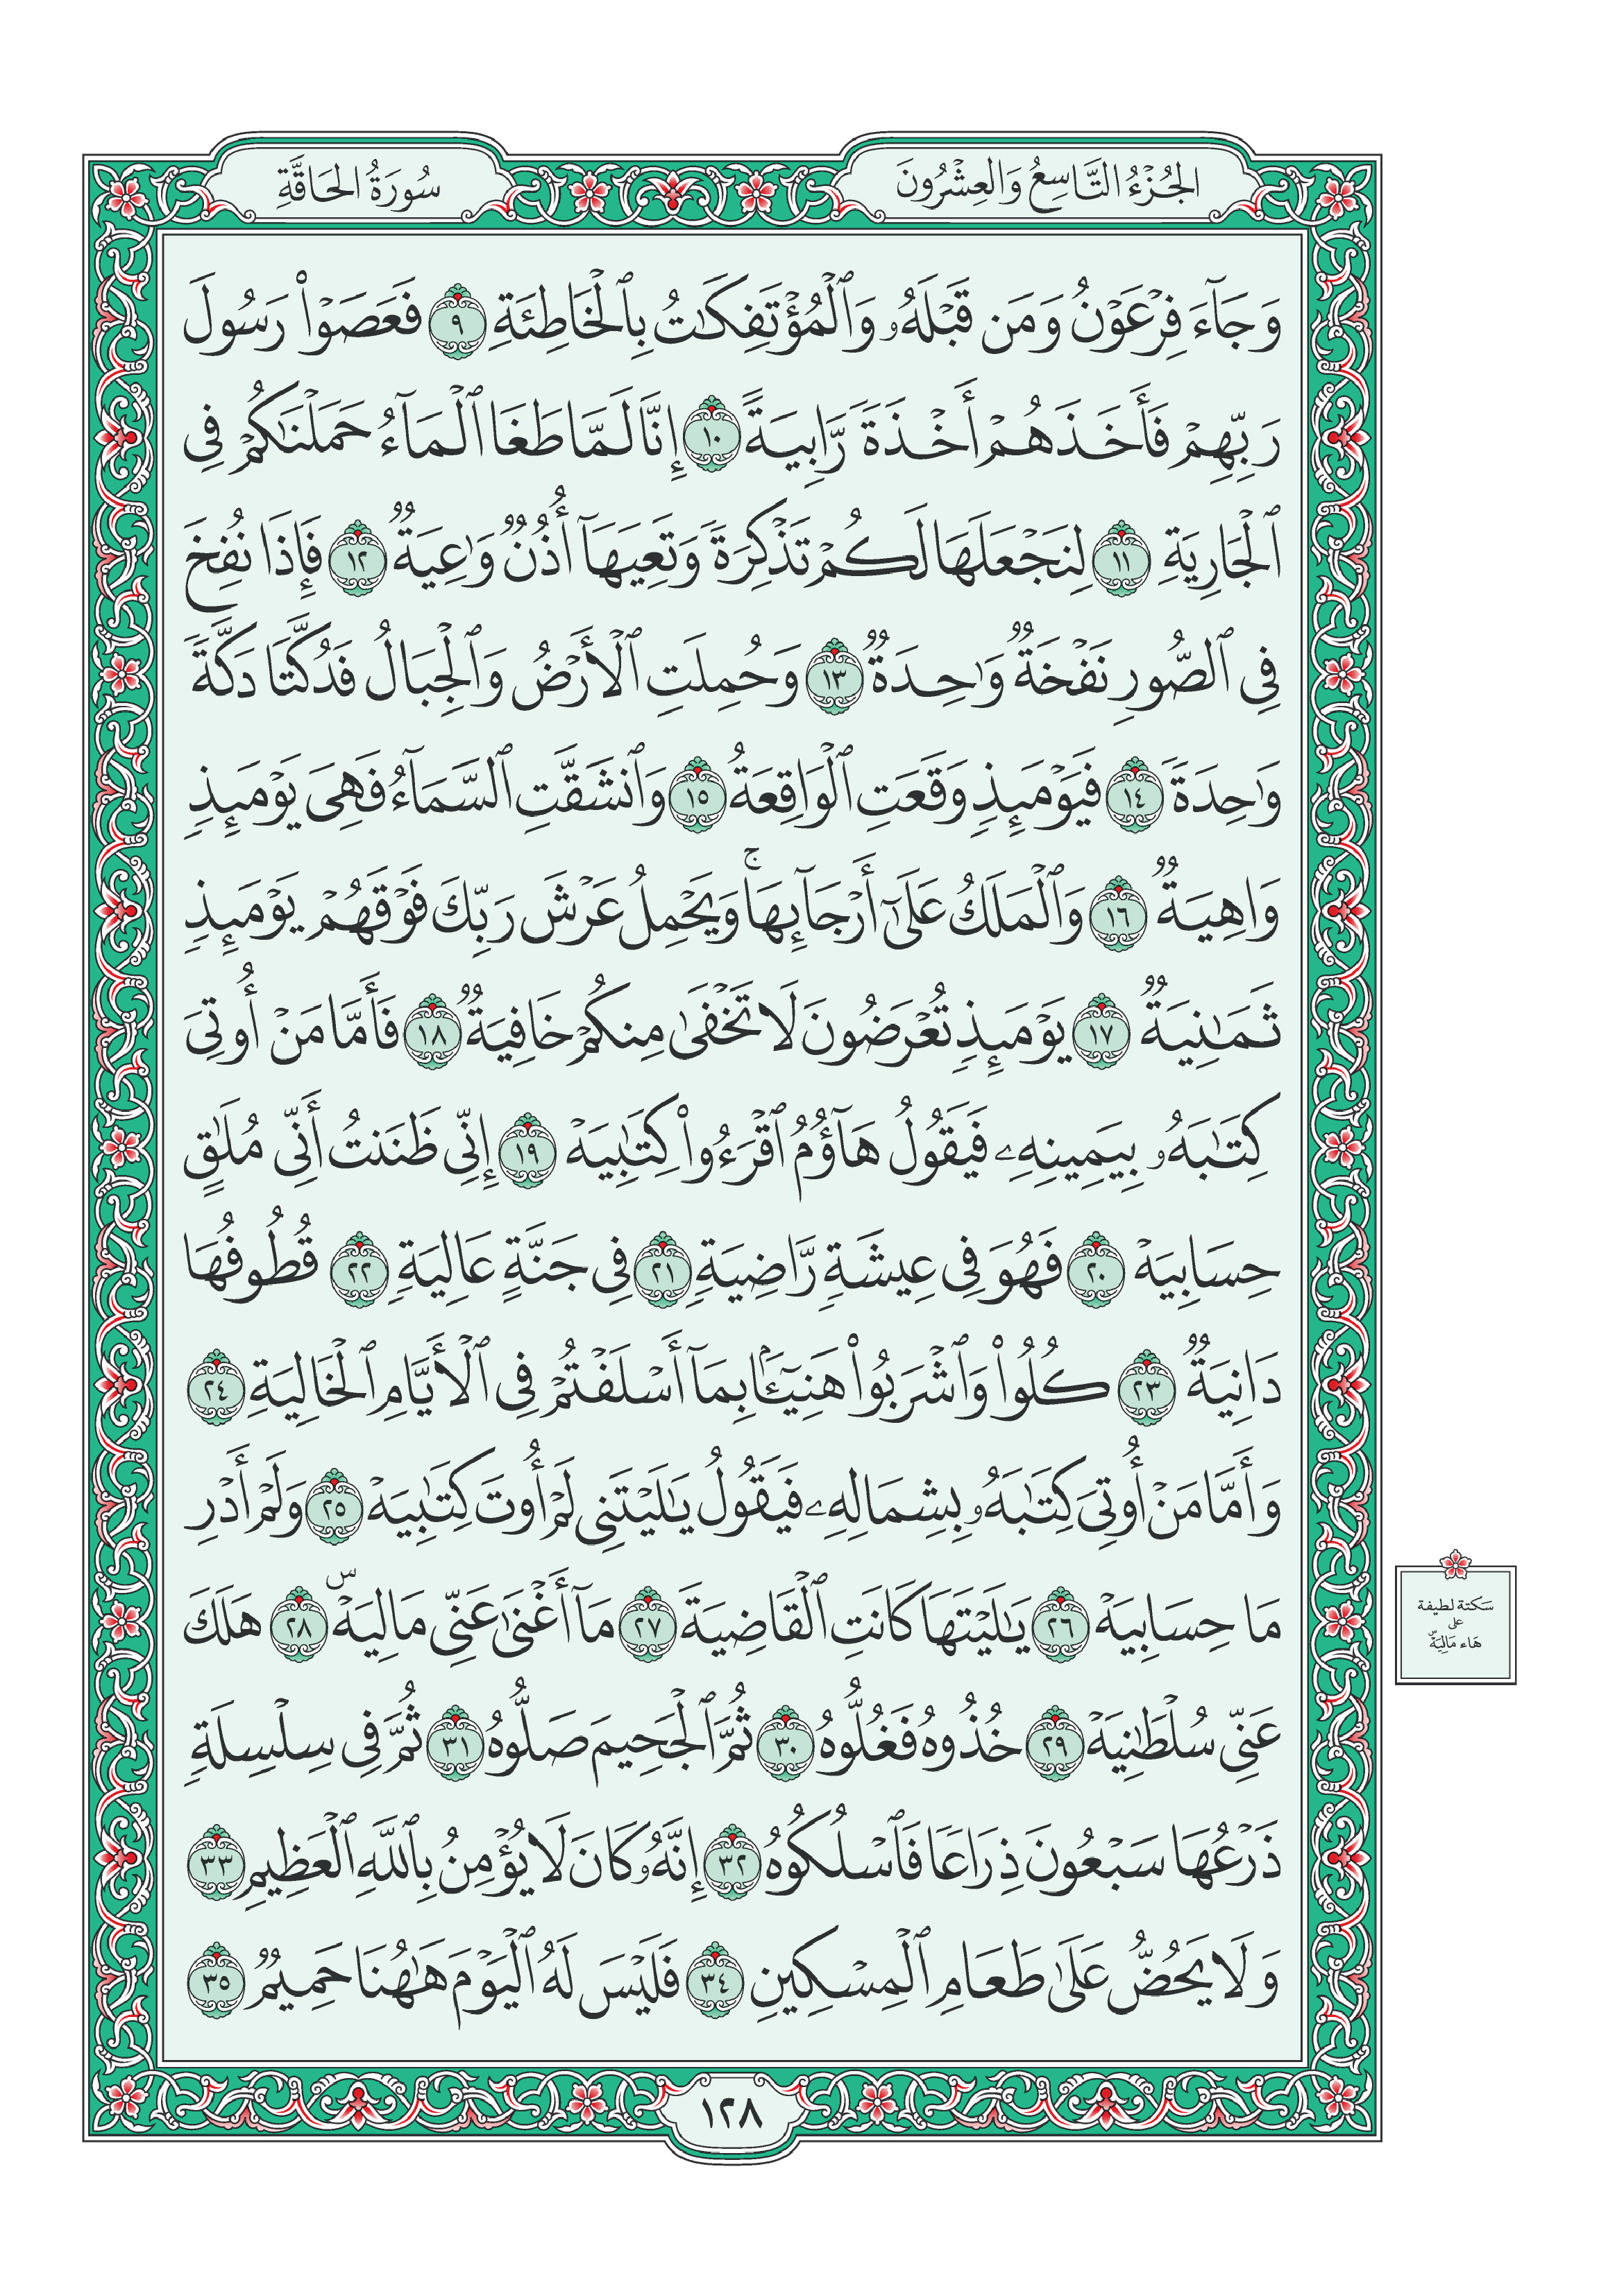 الجُزْءُ التَّاسِعُ وَالعِشْرُونَ
سُورَةُ الحَاقَّةِ
وَجَآءَ فِرْعَوْنُ وَمَن قَبْلَهُۥ وَٱلْمُؤْتَفِكَٰتُ بِٱلْخَاطِئَةِ ٩ فَعَصَوْا۟ رَسُولَ
رَبِّهِمْ فَأَخَذَهُمْ أَخْذَةً رَّابِيَةً ١٠ إِنَّا لَمَّا طَغَا ٱلْمَآءُ حَمَلْنَٰكُمْ فِى
ٱلْجَارِيَةِ ١١ لِنَجْعَلَهَا لَكُمْ تَذْكِرَةً وَتَعِيَهَآ أُذُنٌ وَٰعِيَةٌ ١٢ فَإِذَا نُفِخَ
فِى ٱلصُّورِ نَفْخَةٌ وَٰحِدَةٌ ١٣ وَحُمِلَتِ ٱلْأَرْضُ وَٱلْجِبَالُ فَدُكَّتَا دَكَّةً
وَٰحِدَةً ١٤ فَيَوْمَئِذٍ وَقَعَتِ ٱلْوَاقِعَةُ ١٥ وَٱنشَقَّتِ ٱلسَّمَآءُ فَهِىَ يَوْمَئِذٍ
وَاهِيَةٌ ١٦ وَٱلْمَلَكُ عَلَىٰٓ أَرْجَآئِهَا ۚ وَيَحْمِلُ عَرْشَ رَبِّكَ فَوْقَهُمْ يَوْمَئِذٍ
ثَمَٰنِيَةٌ ١٧ يَوْمَئِذٍ تُعْرَضُونَ لَا تَخْفَىٰ مِنكُمْ خَافِيَةٌ ١٨ فَأَمَّا مَنْ أُوتِىَ
كِتَٰبَهُۥ بِيَمِينِهِۦ فَيَقُولُ هَآؤُمُ ٱقْرَءُوا۟ كِتَٰبِيَهْ ١٩ إِنِّى ظَنَنتُ أَنِّى مُلَٰقٍ
حِسَابِيَهْ ٢٠ فَهُوَ فِى عِيشَةٍ رَّاضِيَةٍ ٢١ فِى جَنَّةٍ عَالِيَةٍ ٢٢ قُطُوفُهَا
دَانِيَةٌ ٢٣ كُلُوا۟ وَٱشْرَبُوا۟ هَنِيٓـًٔۢا بِمَآ أَسْلَفْتُمْ فِى ٱلْأَيَّامِ ٱلْخَالِيَةِ ٢٤
وَأَمَّا مَنْ أُوتِىَ كِتَٰبَهُۥ بِشِمَالِهِۦ فَيَقُولُ يَٰلَيْتَنِى لَمْ أُوتَ كِتَٰبِيَهْ ٢٥ وَلَمْ أَدْرِ
مَا حِسَابِيَهْ ٢٦ يَٰلَيْتَهَا كَانَتِ ٱلْقَاضِيَةَ ٢٧ مَآ أَغْنَىٰ عَنِّى مَالِيَهْ ۜ ٢٨ هَلَكَ
عَنِّى سُلْطَٰنِيَهْ ٢٩ خُذُوهُ فَغُلُّوهُ ٣٠ ثُمَّ ٱلْجَحِيمَ صَلُّوهُ ٣١ ثُمَّ فِى سِلْسِلَةٍ
ذَرْعُهَا سَبْعُونَ ذِرَاعًا فَٱسْلُكُوهُ ٣٢ إِنَّهُۥ كَانَ لَا يُؤْمِنُ بِٱللَّهِ ٱلْعَظِيمِ ٣٣
وَلَا يَحُضُّ عَلَىٰ طَعَامِ ٱلْمِسْكِينِ ٣٤ فَلَيْسَ لَهُ ٱلْيَوْمَ هَٰهُنَا حَمِيمٌ ٣٥
سَكتة لطيفة
على
هَاء مَالِيَهْۜ
١٢٨